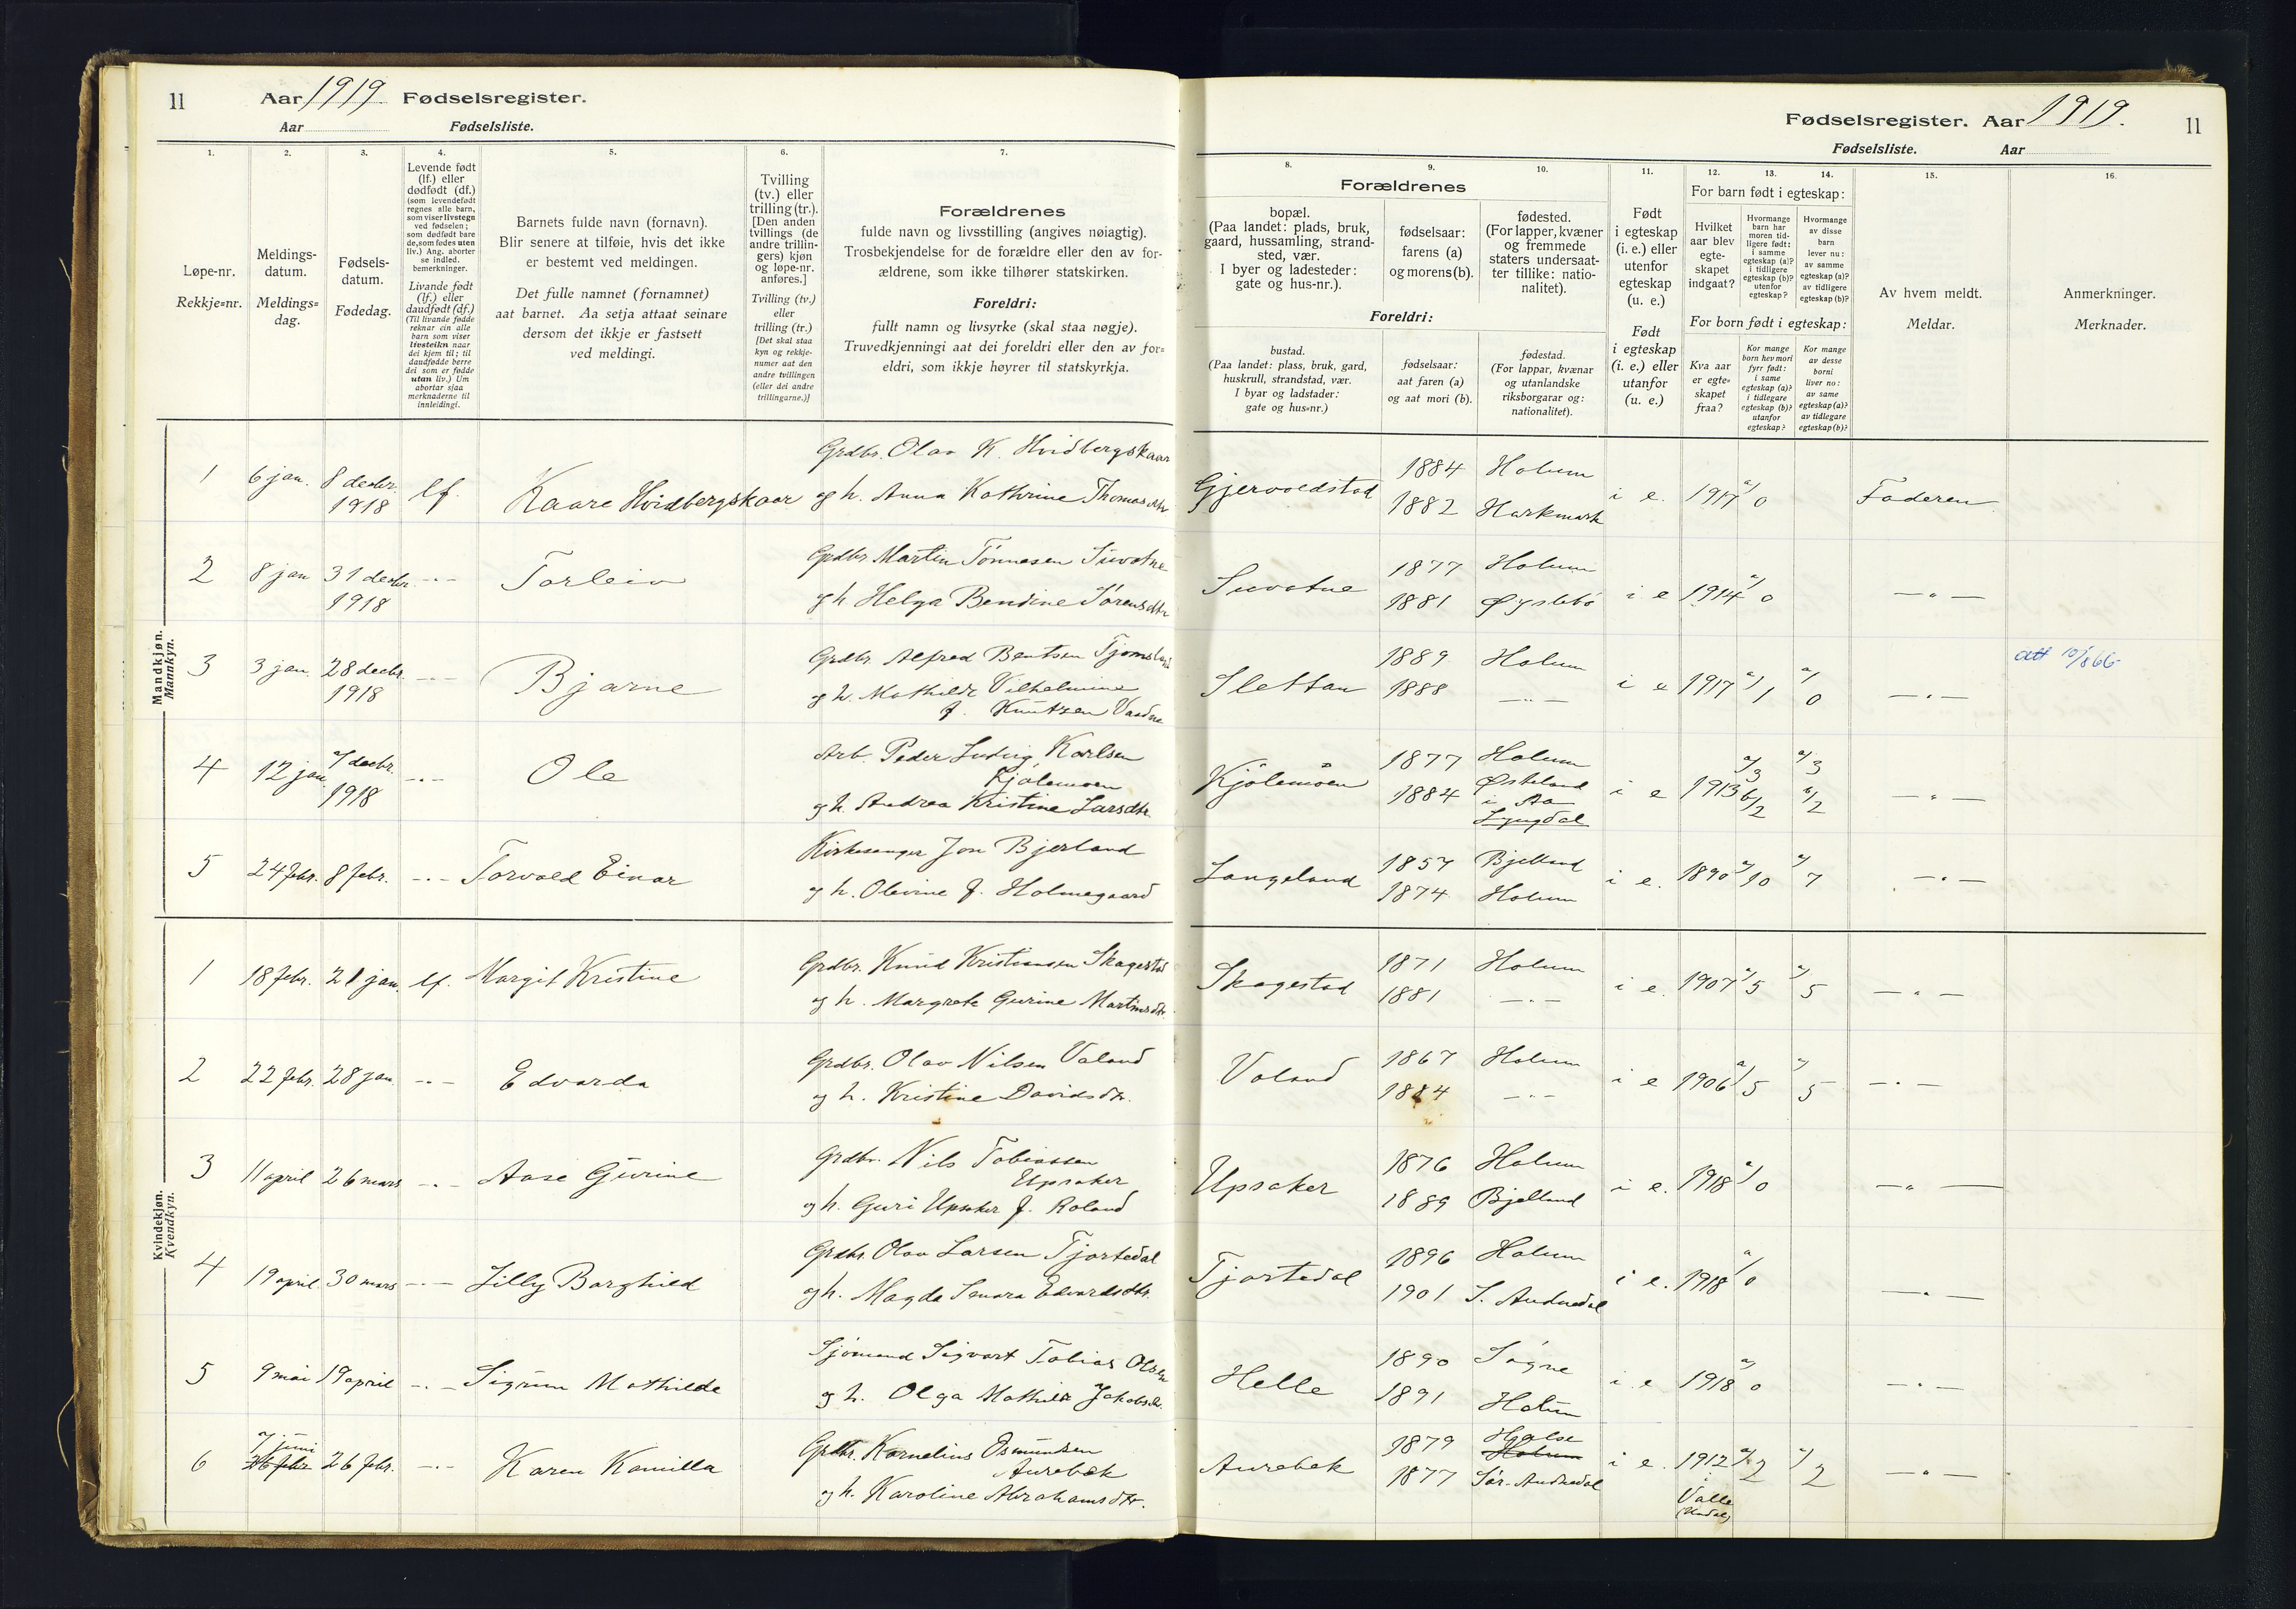 11 Aar 1919 Fødselsregister.
Aar Fødselsliste.
1. 2. 3. 4. 5. 6. 7.
Løpe-nr.
Rekkje=nr.
Meldings-
datum.
Meldings=
dag.
Fødsels-
datum.
Fødedag.
Levende født
(lf.) eller
dødfødt (df.)
(som levendefødt
regnes alle barn,
som viser livstegn
ved fødselen;
som dødfødt bare
de, som fødes uten
liv.) Ang. aborter
se indled.
bemerkninger.
Livande født
(lf.) eller
daudfødt (df.)
(Til livande fødde
reknar ein alle
barn som viser
livsteikn naar
dei kjem til; til
daudfødde berre
dei som er fødde
utan liv.) Um
abortar sjaa
merknaderne til
innleidingi.
Barnets fulde navn (fornavn).
Blir senere at tilføie, hvis det ikke
er bestemt ved meldingen.
Det fulle namnet (fornamnet)
aat barnet. Aa setja attaat seinare
dersom det ikkje er fastsett
ved meldingi.
Tvilling
(tv.) eller
trilling (tr.).
[Den anden
tvillings (de
andre trillin-
gers) kjøn
og løpe-nr.
anføres.]
Tvilling (tv.)
eller
trilling (tr.)
[Det skal staa
kyn og rekkje-
numer aat den
andre tvillingen
(eller dei andre
trillingarne.)]
Forældrenes
fulde navn og livsstilling (angives nøiagtig).
Trosbekjendelse for de forældre eller den av for-
ældrene, som ikke tilhører statskirken.
Foreldri:
fullt namn og livsyrke (skal staa nøgje).
Truvedkjenningi aat dei foreldri eller den av for=
eldri, som ikkje høyrer til statskyrkja.
Mandkjøn.
Mannkyn.
1 6 jan. 8 decbr. 1918 lf. Kaare Hvidbergskaar
Grdbr. Olav K. Hvidbergskaar
og h. Anna Kathrine Thomasdtr
2 8 jan 31 decbr. 1918 -"- Torleiv
Grdbr Martin Tönnesen Suvatne
og h Helga Bendine Sörensdtr
3 3 jan. 28 decbr. 1918 -"- Bjarne
Grdbr. Alfred Bentsen Tjomsland
og h. Mathilde Vilhelmine
f. Knutsen
4 12 jan. 7 decbr. 1918 -"- Ole
Arb. Peder Ludvig Karlsen
Kjölemoen
og h. Andrea Kristine Larsdtr.
5 24 febr. 8 febr. -"- Torvald Einar
Kirkesanger Jon Bjerland
og h. Olevine f. Holmegaard
Kvindekjøn.
Kvendkyn.
1 18 febr. 21 jan. lf. Margit Kristine
Grdbr. Knud Kristiansen Skagestad
og h. Margrete Gurine Martinsdtr.
2 22 febr. 28 jan. -"- Edvarda
Grdbr. Olav Nilsen Valand
og h. Kristine Davidsdtr.
3 11 april 26 mars -"- Aase Gurine
Grdbr. Nils Tobiassen
Upsaker
og h. Guri Upsaker f. Roland
4 19 april 30 mars -"- Lilly Borghild
Grdbr. Olav Larsen Tjortedal
og h. Magda Senora Edvardsdtr.
5 9 mai 19 april -"- Sigrun Mathilde
Sjömand Sigvart Tobias Olsen
og h. Olga Mathilde Jakobsdtr.
7 juni
6 26 febr 26 febr. -"- Karen Kamilla
Grdbr. Kornelius Osmundsen
Aurebek
og h. Karoline Abrahamsdtr.
Fødselsregister. Aar 1919. 11
Fødselsliste. Aar
8. 9. 10. 11. 12. 13. 14. 15. 16.
Forældrenes
bopæl.
(Paa landet: plads, bruk,
gaard, hussamling, strand-
sted, vær.
I byer og ladesteder:
gate og hus-nr.).
fødselsaar:
farens (a)
og morens (b).
fødested.
(For lapper, kvæner
og fremmede
staters undersaat-
ter tillike: natio-
nalitet).
Foreldri:
bustad.
(Paa landet: plass, bruk, gard,
huskrull, strandstad, vær.
I byar og ladstader:
gate og hus=nr.)
fødselsaar:
aat faren (a)
og aat mori (b).
fødestad.
(For lappar, kvænar
og utanlandske
riksborgarar og:
nationalitet).
Født
i egteskap
(i. e.) eller
utenfor
egteskap
(u. e.)
Født
i egteskap
(i. e.) eller
utanfor
(u. e.)
For barn født i egteskap:
Hvilket
aar blev
egte-
skapet
indgaat?
Hvormange
barn har
moren tid-
ligere født:
i samme
egteskap (a)?
i tidligere
egteskap (b)?
utenfor
egteskap?
Hvormange
av disse
barn
lever nu:
av samme
egteskap (a)?
av tidligere
egteskap (b)?
For born født i egteskap:
Kva aar
er egte=
skapet
fraa?
Kor mange
born hev mori
fyrr født:
i same
egteskap (a)?
i tidlegare
egteskap (b)?
utanfor
egteskap?
Kor mange
av desse
borni
liver no:
av same
egteskap (a)?
av tidlegare
egteskap (b)?
Av hvem meldt.
Meldar.
Anmerkninger.
Merknader.
Gjervoldstad 1884 Holum
1882 Harkmark i e. 1917 a/0 Faderen
Suvatne 1877 Holum
1881 Øyslebö i e 1914 a/0 -"-
Slettan 1889 Holum
1888 -"- i e 1917 a/1 a/0 -"- att 10/8 66
Kjölemoen 1877 Holum
1884 Østeland
i Aa
Lyngdal i e 1913 a/3 b/2 a/3 b/2 -"-
Langeland 1857 Bjelland
1874 Holum i e. 1890 a/10 a/7 -"-
Skagestad 1871 Holum
1881 -"- i e. 1907 a/5 a/5 -"-
Valand 1867 Holum
1884 -"- i e 1906 a/5 a/5 -"-
Upsaker 1876 Holum
1889 Bjelland i e. 1918 a/0 -"-
Tjortedal 1896 Holum
1901 S. Audnedal i e. 1918 a/0 -"-
Helle 1890 Søgne
1891 Holum i e 1918 a/0 -"-
Aurebek 1879 Halse
Holum
1877 Sör-Audnedal i e. 1912 a/2 a/2 -"-
i
Valle
(Undal)